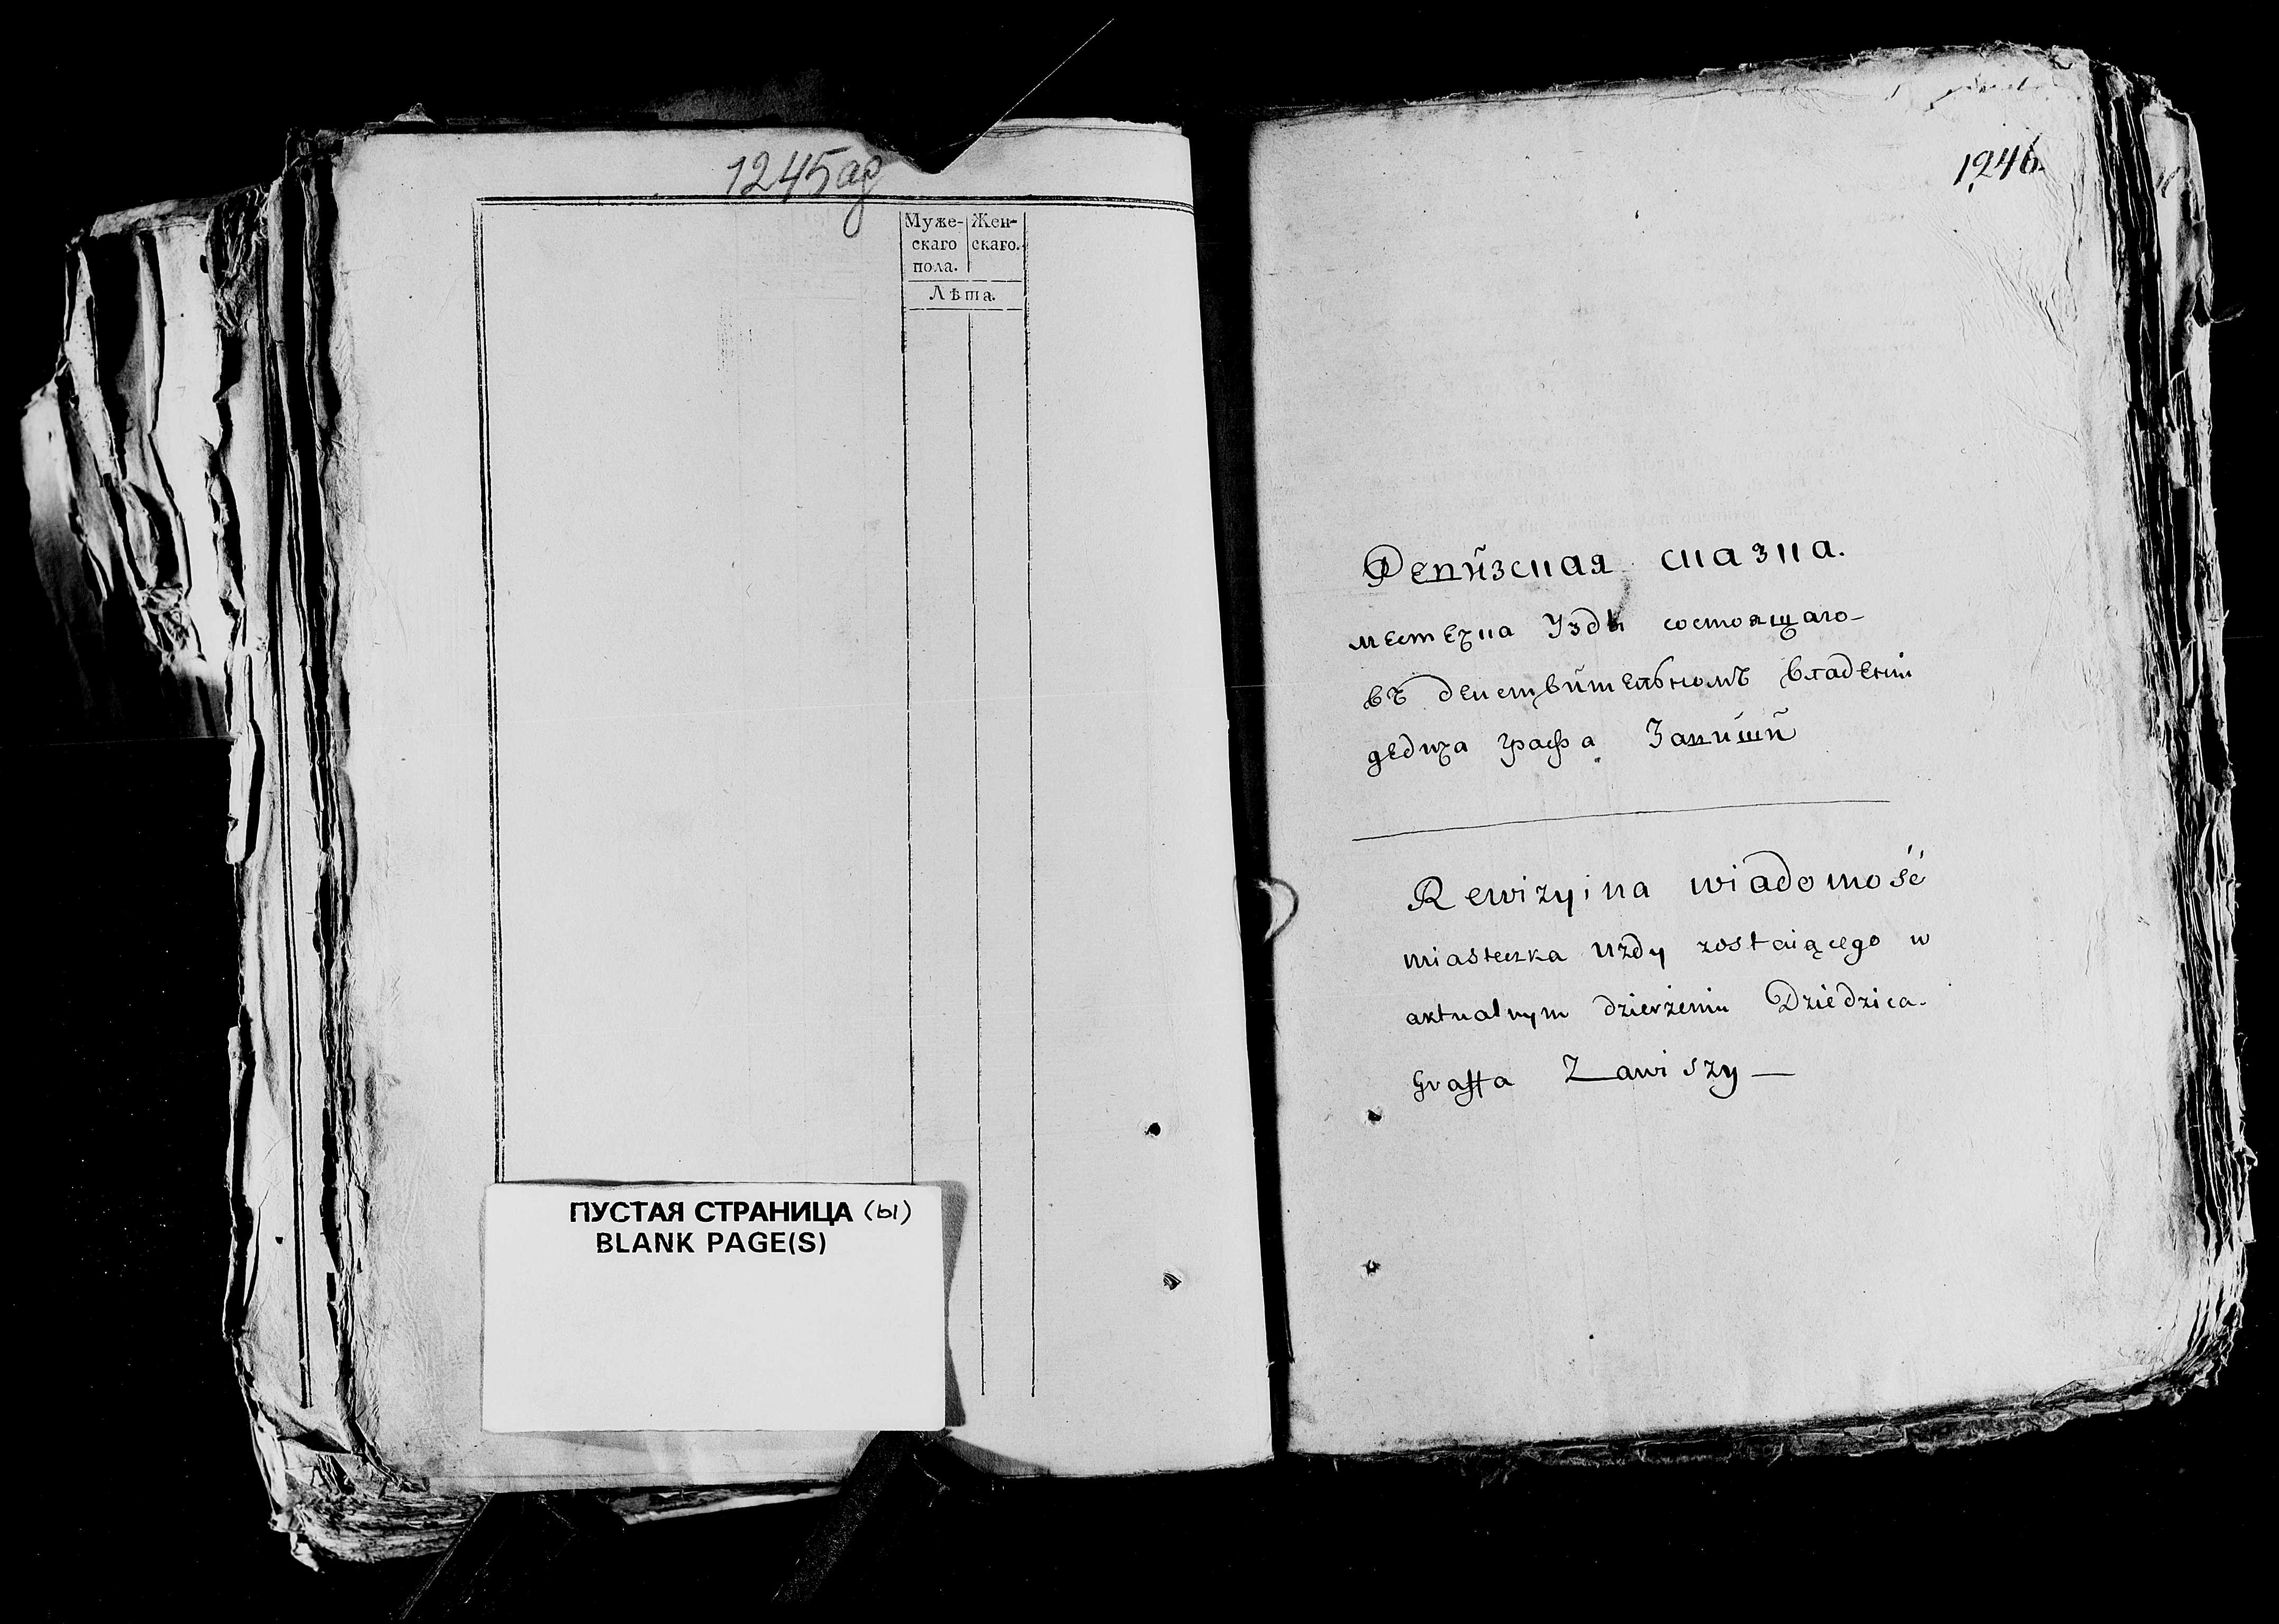 1245ад
Муже-
скаго
пола.
Жен-
скаго.
Лѣта.
ПУСТАЯ СТРАНИЦА (ы)
BLANK PAGE(S)
1246.
Ревизская сказка.
местечка Узды состоящаго
въ действительномъ владении
дедича графа Завиши
Rewizyina wiadomość
miasteczka Uzdy zostaiącego w
aktualnym dzierżeniu Dziedzica
Graffa Zawiszy —